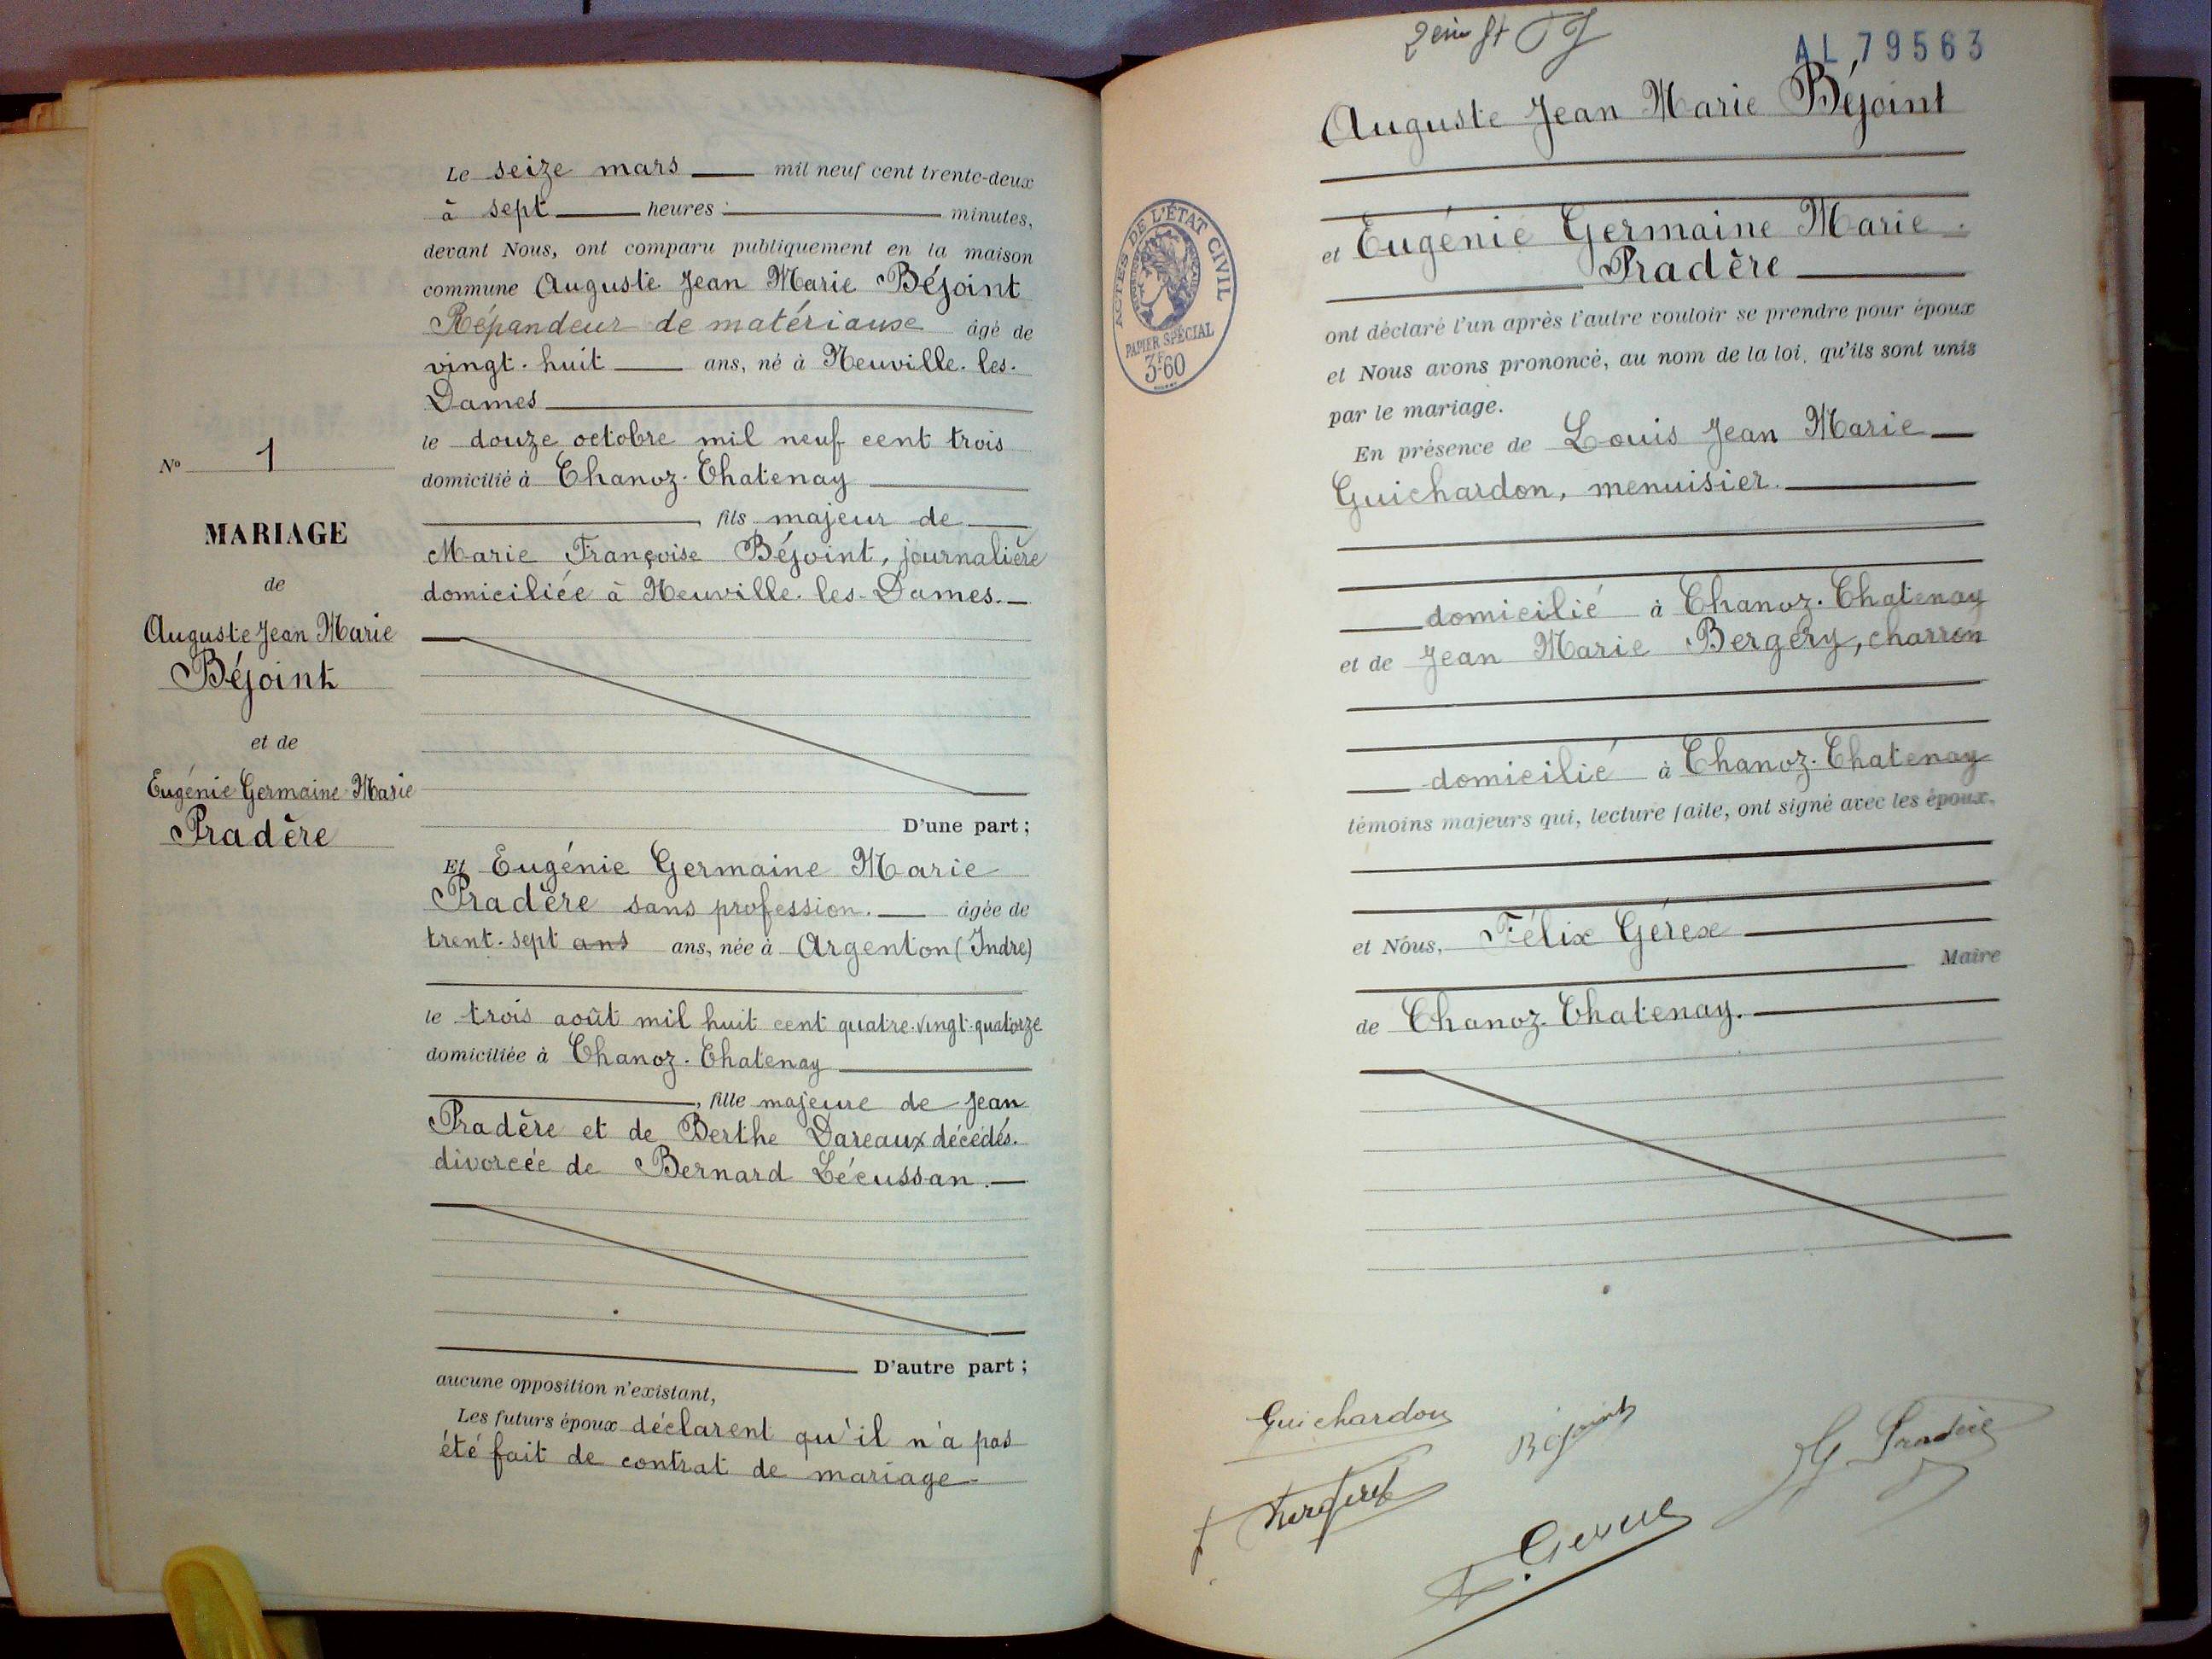 Le seize mars mil neuf cent trente-deux
à sept heures : minutes,
devant Nous, ont comparu publiquement en la maison
commune Auguste Jean Marie Béjoint
Répandeur de matériause âgé de
vingt-huit ans, né à Neuville-les-
Dames
le douze octobre mil neuf cent trois
domicilié à Chanoz-Chatenay
, fils majeur de
Marie Françoise Béjoint, journalière
domiciliée à Neuville-les-Dames.
N° 1
MARIAGE
de
Auguste Jean Marie
Béjoint
et de
Eugénie Germaine Marie
Pradère
D'une part ;
Et Eugénie Germaine Marie
Pradère sans profession. âgée de
trent-sept ans ans, née à Argenton (Indre)
le trois août mil huit cent quatre-vingt-quatorze
domiciliée à Chanoz-Chatenay
, fille majeure de Jean
Pradère et de Berthe Dareaux décédés.
divorcée de Bernard Lécussan.
D'autre part ;
aucune opposition n'existant,
Les futurs époux déclarent qu'il n'a pas
été fait de contrat de mariage
AL 79563
Auguste Jean Marie Béjoint
et Eugénie Germaine Marie
Pradère
ACTES DE L'ÉTAT CIVIL
PAPIER SPÉCIAL
3F60
ont déclaré l'un après l'autre vouloir se prendre pour époux
et Nous avons prononcé, au nom de la loi, qu'ils sont unis
par le mariage.
En présence de Louis Jean Marie
Guichardon, menuisier.
domicilié à Chanoz-Chatenay
et de Jean Marie Bergery, charron
domicilié à Chanoz-Chatenay
témoins majeurs qui, lecture faite, ont signé avec les époux.
et Nous, Félix Gérex
Maire
de Chanoz-Chatenay.
Guichardon
Béjoint
G Pradère